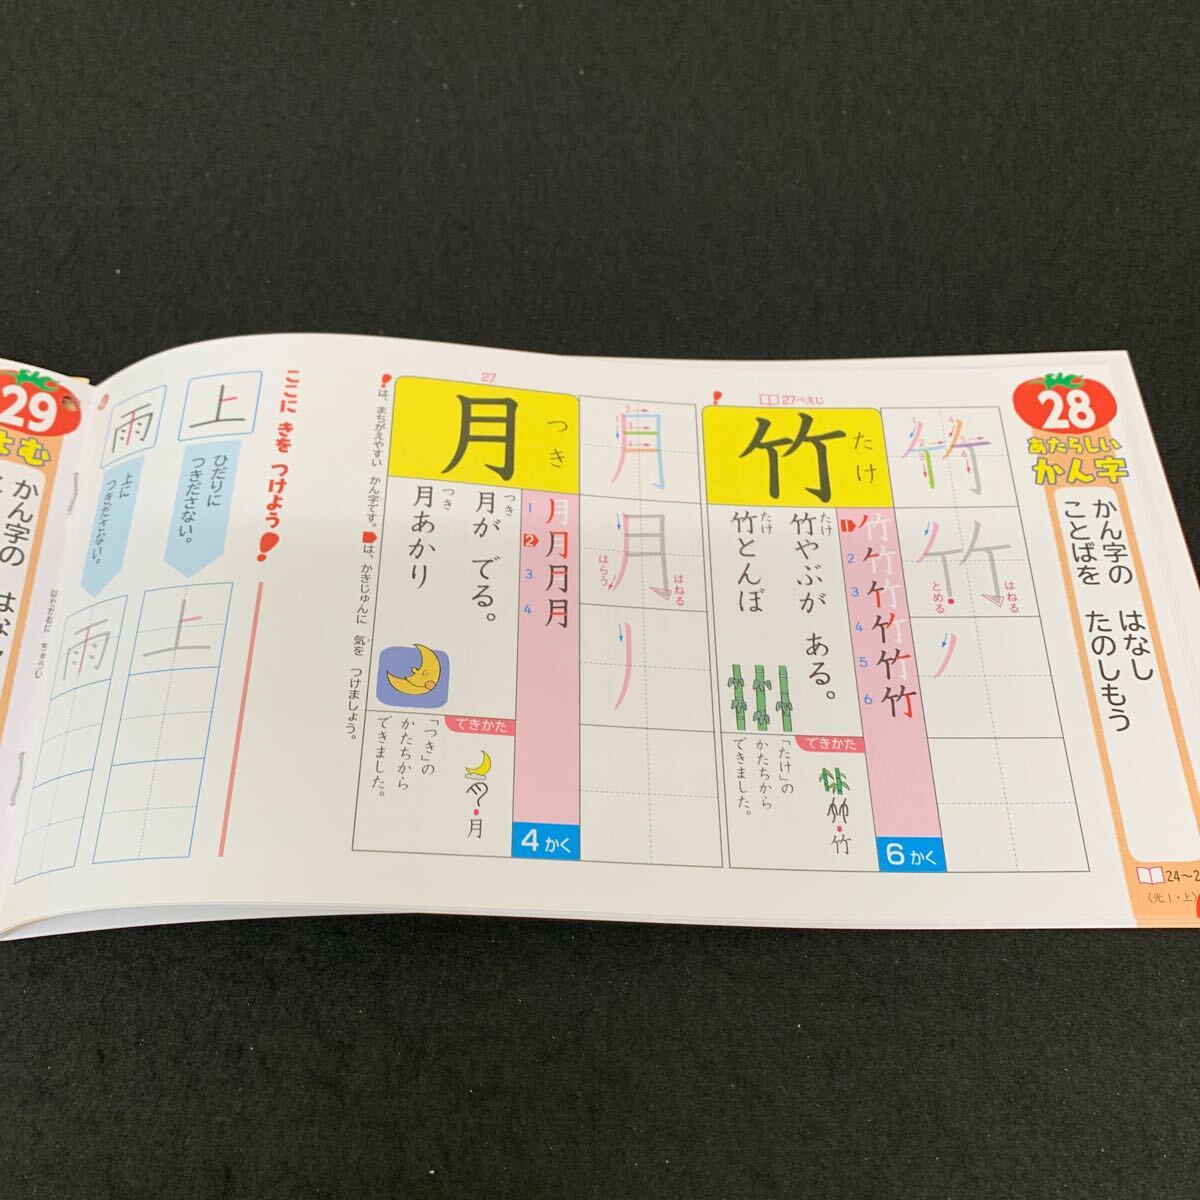 28
あたらしい
かん字
かん字の はなし
ことばを たのしもう
24〜2
(光1・上)
27ぺえじ
竹
たけ
竹やぶが ある。
たけ
竹とんぼ
たけ
1
2
3
4
5
6
竹
はねる
とめる
6かく
できかた
「たけ」の
かたちから
できました。
竹
27
月
つき
月が でる。
つき
月あかり
つき
1
2
3
4
月
はねる
はらう
4かく
できかた
「つき」の
かたちから
できました。
月
!は、まちがえやすい かん字です。 は、かきじゅんに 気を つけましょう。
ここに きを つけよう!
上
ひだりに
つきださない。
上
雨
上に
つきださない。
雨
29
よむ
かん字の はな